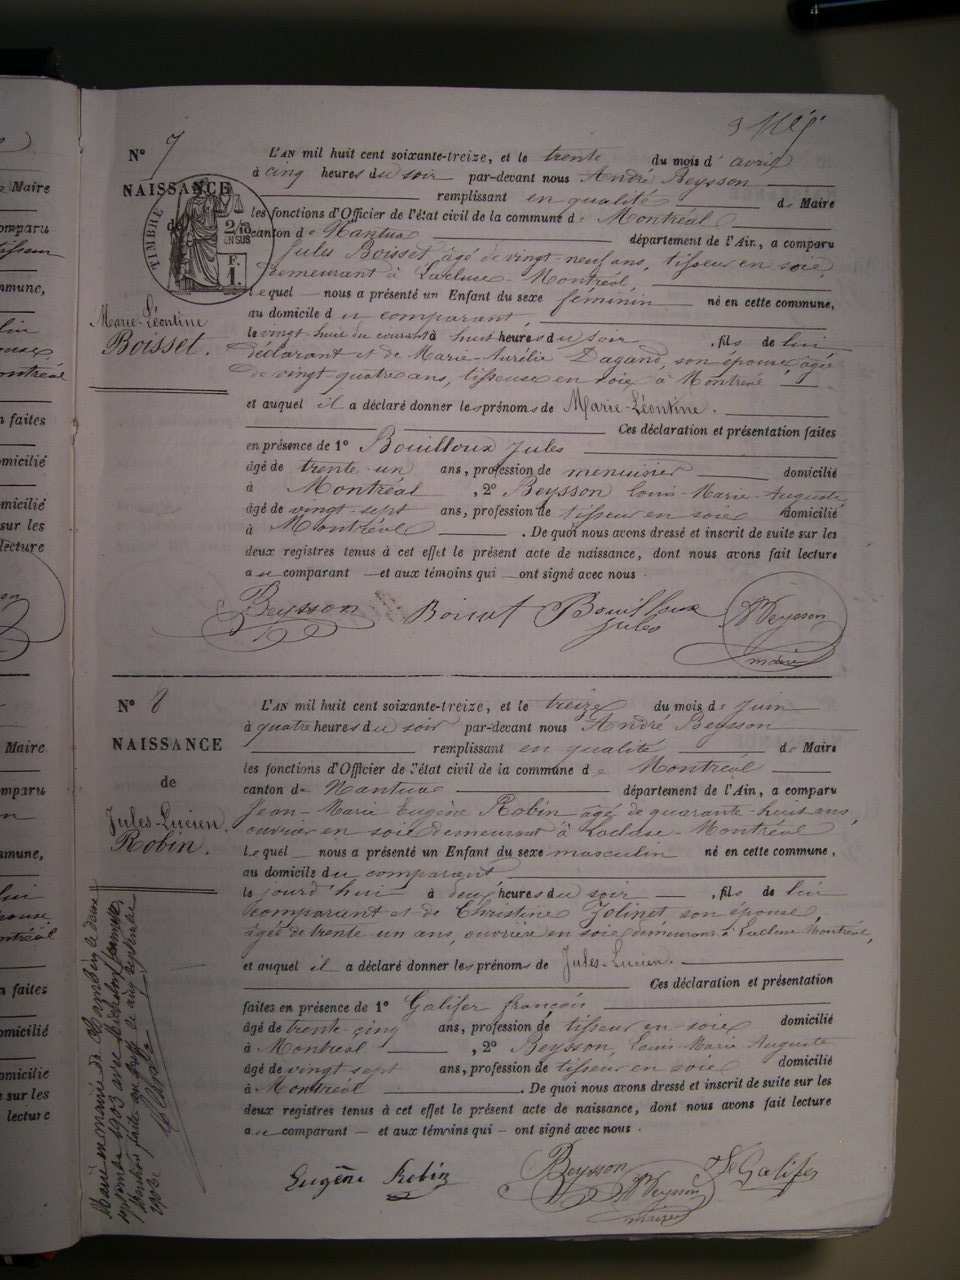 N° 7
NAISSANCE
de
TIMBRE
2/10
EN SUS
F.
1.
Marie-Léontine
Boisset.
L'AN mil huit cent soixante-treize, et le trente du mois d' avril
à cinq heures du soir par-devant nous André Beysson
remplissant en qualité de Maire
les fonctions d'Officier de l'état civil de la commune de Montréal
canton de Nantua département de l'Ain, a comparu
Jules Boisset âgé de vingt-neuf ans, tisseur en soie,
demeurant à Lacluse-Montréal,
lequel nous a présenté un Enfant du sexe féminin né en cette commune,
au domicile du comparant,
le vingt-huit du courant à huit heures du soir, fils de lui
déclarant et de Marie-Aurélie Dagand, son épouse, âgée
de vingt-quatre ans, tisseuse en soie à Montréal
et auquel il a déclaré donner les prénoms de Marie-Léontine.
Ces déclaration et présentation faites
en présence de 1° Bouilloux Jules
âgé de trente-un ans, profession de menuisier domicilié
à Montréal, 2° Beysson Louis-Marie-Auguste
âgé de vingt-sept ans, profession de tisseur en soie domicilié
à Montréal. De quoi nous avons dressé et inscrit de suite sur les
deux registres tenus à cet effet le présent acte de naissance, dont nous avons fait lecture
au comparant et aux témoins qui ont signé avec nous.
Beysson Boisset Bouilloux Jules Beysson
maire
N° 8
NAISSANCE
de
Jules-Lucien
Robin.
L'AN mil huit cent soixante-treize, et le treize du mois de Juin
à quatre heures du soir par-devant nous André Beysson
remplissant en qualité de Maire
les fonctions d'Officier de l'état civil de la commune de Montréal
canton de Nantua département de l'Ain, a comparu
Jean-Marie Eugène Robin âgé de quarante-huit ans,
ouvrier en soie demeurant à Lacluse-Montréal
lequel nous a présenté un Enfant du sexe masculin né en cette commune,
au domicile du comparant
le jourd'hui à deux heures du soir, fils de lui
comparant et de Christine Jolinet son épouse,
âgée de trente un ans, ouvrière en soie demeurant à Lacluse Montréal,
et auquel il a déclaré donner les prénoms de Jules-Lucien.
Ces déclaration et présentation
faites en présence de 1° Galifer françois
âgé de trente-cinq ans, profession de tisseur en soie domicilié
à Montréal, 2° Beysson, Louis Marie Auguste
âgé de vingt sept ans, profession de tisseur en soie domicilié
à Montréal. De quoi nous avons dressé et inscrit de suite sur les
deux registres tenus à cet effet le présent acte de naissance, dont nous avons fait lecture
au comparant et aux témoins qui ont signé avec nous.
Eugène Robin Beysson Beysson Galifer
maire
Marié en mairie de le deux
septembre 1903 avec
Mention faite au greffe le cinq septembre
1903.